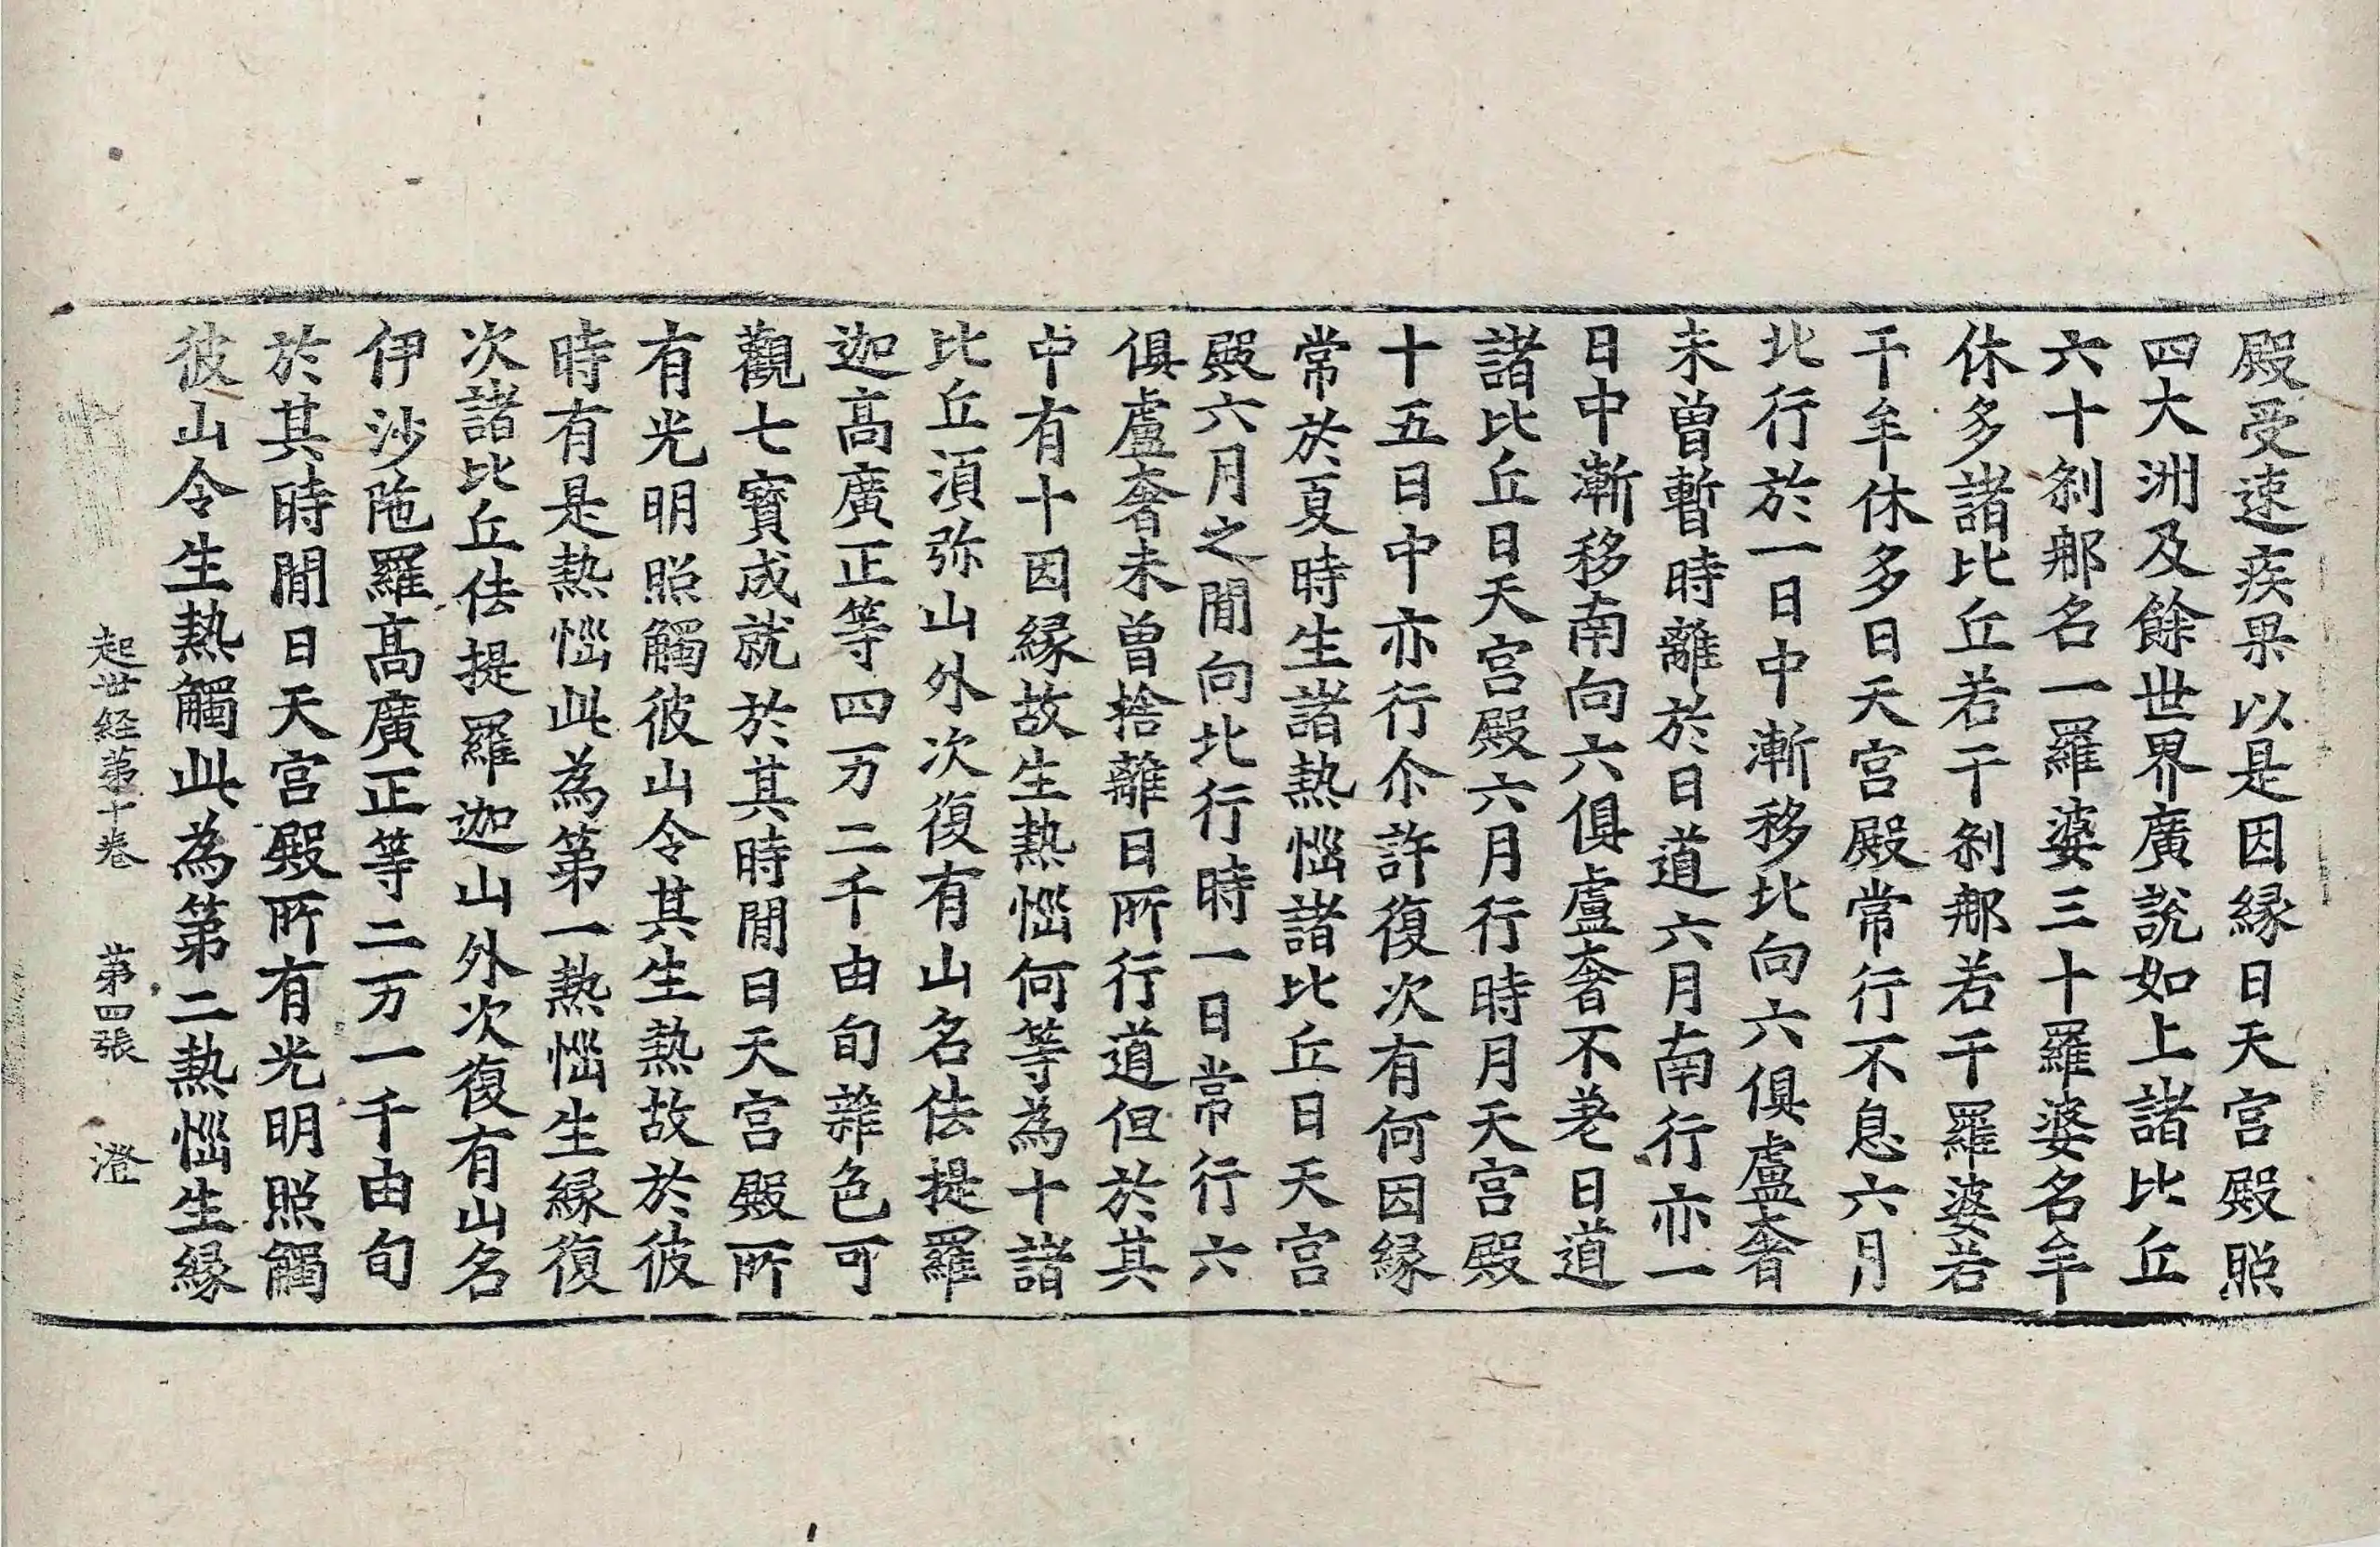 殿受速疾果以是因縁日天宫殿照
四大洲及餘世界廣說如上諸比丘
六十刹那名一羅婆三十羅婆名牟
休多諸比丘若干刹那若干羅婆若
干牟休多日天宫殿常行不息六月
北行於一日中漸移北向六俱盧奢
未曽暫時離於日道六月南行亦一
日中漸移南向六俱盧奢不差日道
諸比丘日天宫殿六月行時月天宫殿
十五日中亦行尒許復次有何因縁
常於夏時生諸熱惱諸比丘日天宫
殿六月之閒向北行時一日常行六
俱盧奢未曽捨離日所行道但於其
中有十因縁故生熱惱何等為十諸
比丘湏弥山外次復有山名佉提羅
迦高廣正等四万二千由旬雜色可
觀七寶成就於其時閒日天宫殿所
有光明照觸彼山令其生熱故於彼
時有是熱惱此為第一熱惱生縁復
次諸比丘佉提羅迦山外次復有山名
伊沙陁羅高廣正等二万一千由旬
於其時閒日天宫殿所有光明照觸
彼山令生熱觸此為第二熱惱生縁
起世经苐十卷 苐四張 澄